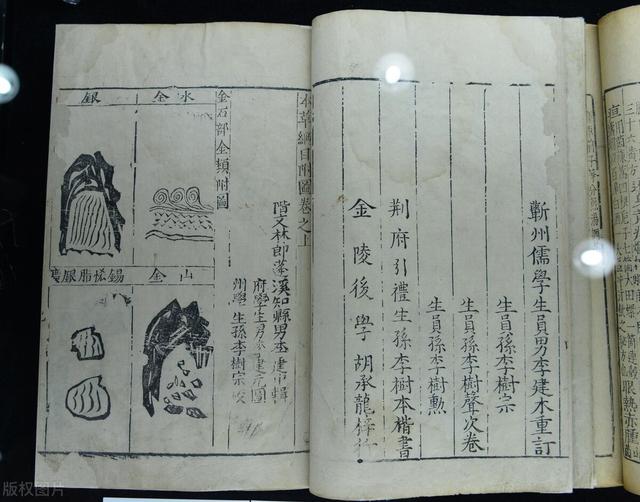 蘄州儒學生員男李建木重訂
生員孫李樹宗
生員孫李樹聲次卷
生員孫李樹勳
荆府引禮生孫李樹本楷書
金陵後學胡承龍梓行
本草綱目附圖卷之上
階文林郎蓬溪知縣男李建中輯
府學生男李建元圖
州學生孫李樹宗校
金石部金類附圖
水金
山金
銀
錫恡脂銀礦
版权图片